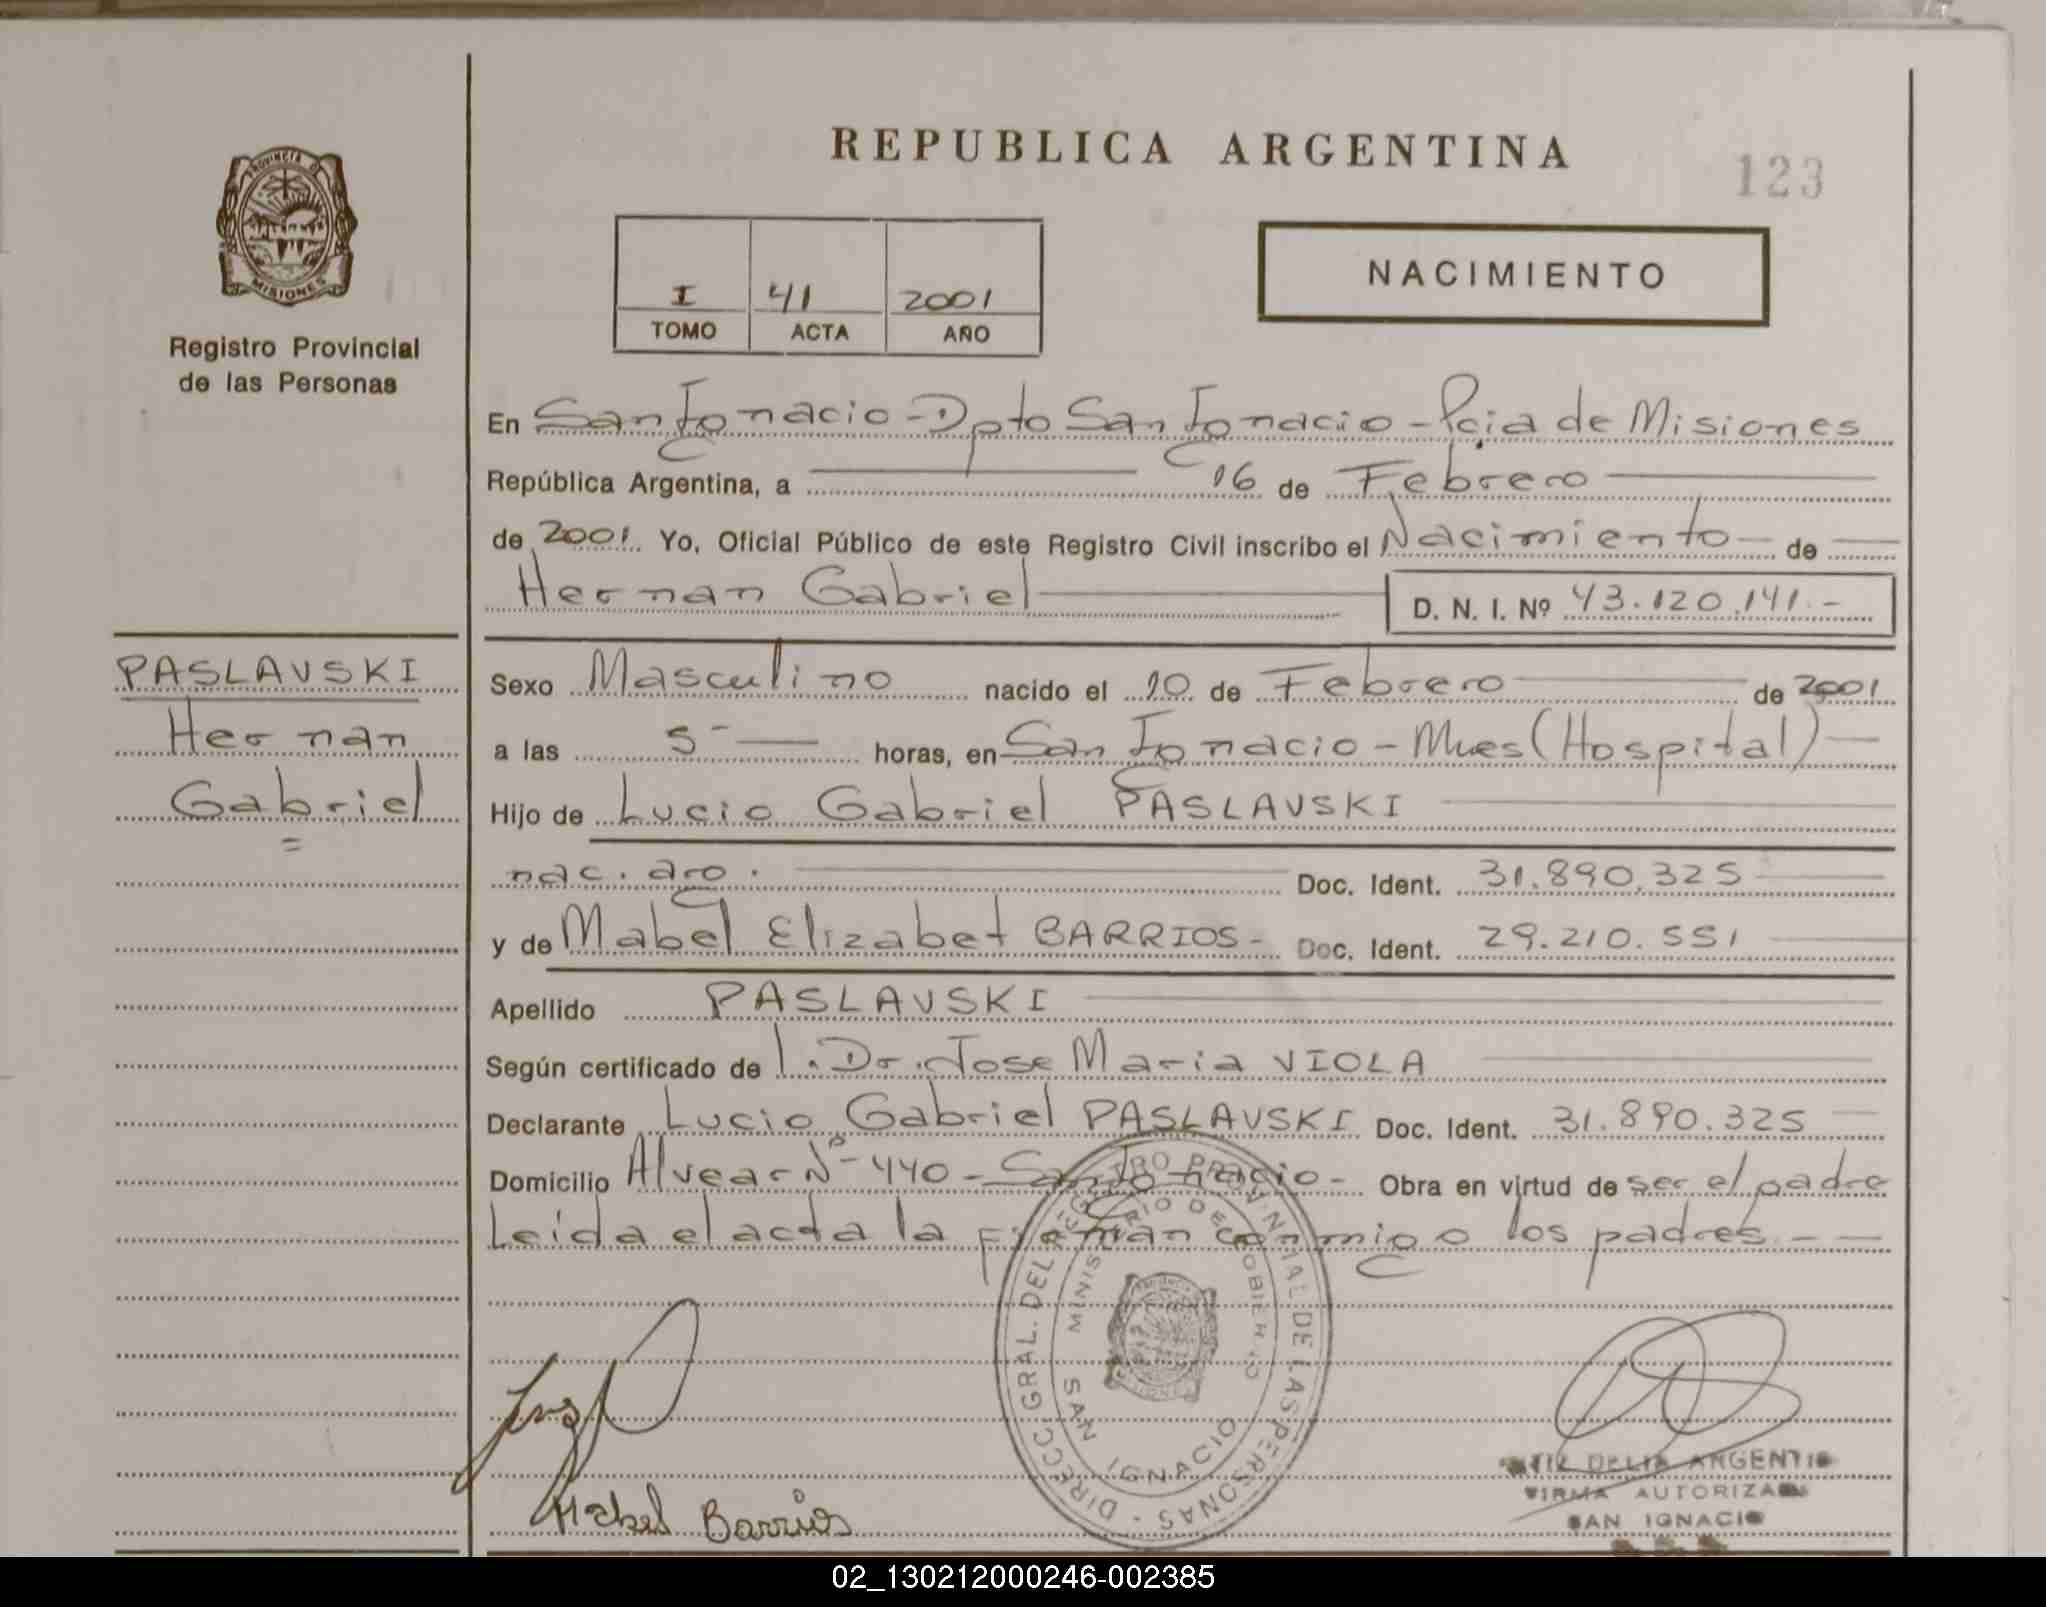 REPUBLICA ARGENTINA
123
PROVINCIA DE
MISIONES
Registro Provincial
de las Personas
I 41 2001
TOMO ACTA AÑO
NACIMIENTO
En San Ignacio - Dpto San Ignacio - Pcia de Misiones
República Argentina, a 16 de Febrero
de 2001. Yo, Oficial Público de este Registro Civil inscribo el Nacimiento de
Hernan Gabriel D. N. I. Nº 43.120.141.-
PASLAVSKI
Hernan
Gabriel
Sexo Masculino nacido el 10 de Febrero de 2001
a las 5 horas, en San Ignacio - Mnes (Hospital)
Hijo de Lucio Gabriel PASLAVSKI
nac. arg. Doc. Ident. 31.890.325
y de Mabel Elizabet BARRIOS - Doc. Ident. 29.210.551
Apellido PASLAVSKI
Según certificado de l. Dr. Jose Maria VIOLA
Declarante Lucio Gabriel PASLAVSKI Doc. Ident. 31.890.325
Domicilio Alvear Nº 440 - San Ignacio - Obra en virtud de ser el padre
Leida el acta la firman conmigo los padres
DIRECC. GRAL. DEL REGISTRO PROVINCIAL DE LAS PERSONAS
MINISTERIO DE GOBIERNO
SAN IGNACIO
Mabel Barrios
DELIA ARGENTI
FIRMA AUTORIZADA
SAN IGNACIO
02_130212000246-002385